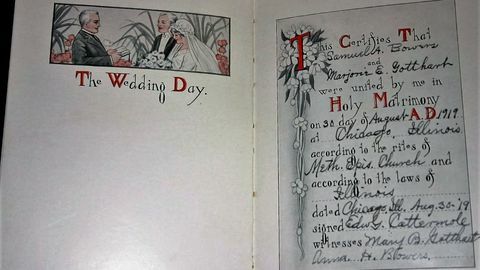 The Wedding Day.
This Certifies That
Samuel A. Bowers
and
Marjorie E. Gotthart
were united by me in
Holy Matrimony
on 30 day of August A.D. 1919
at Chicago, Illinois
according to the rites of
Meth. Epis. Church and
according to the laws of
Illinois
dated Chicago, Ill. Aug. 30-'19
signed Edw. G. Cattermole
witnesses Mary B. Gotthart
Anna H. Bowers